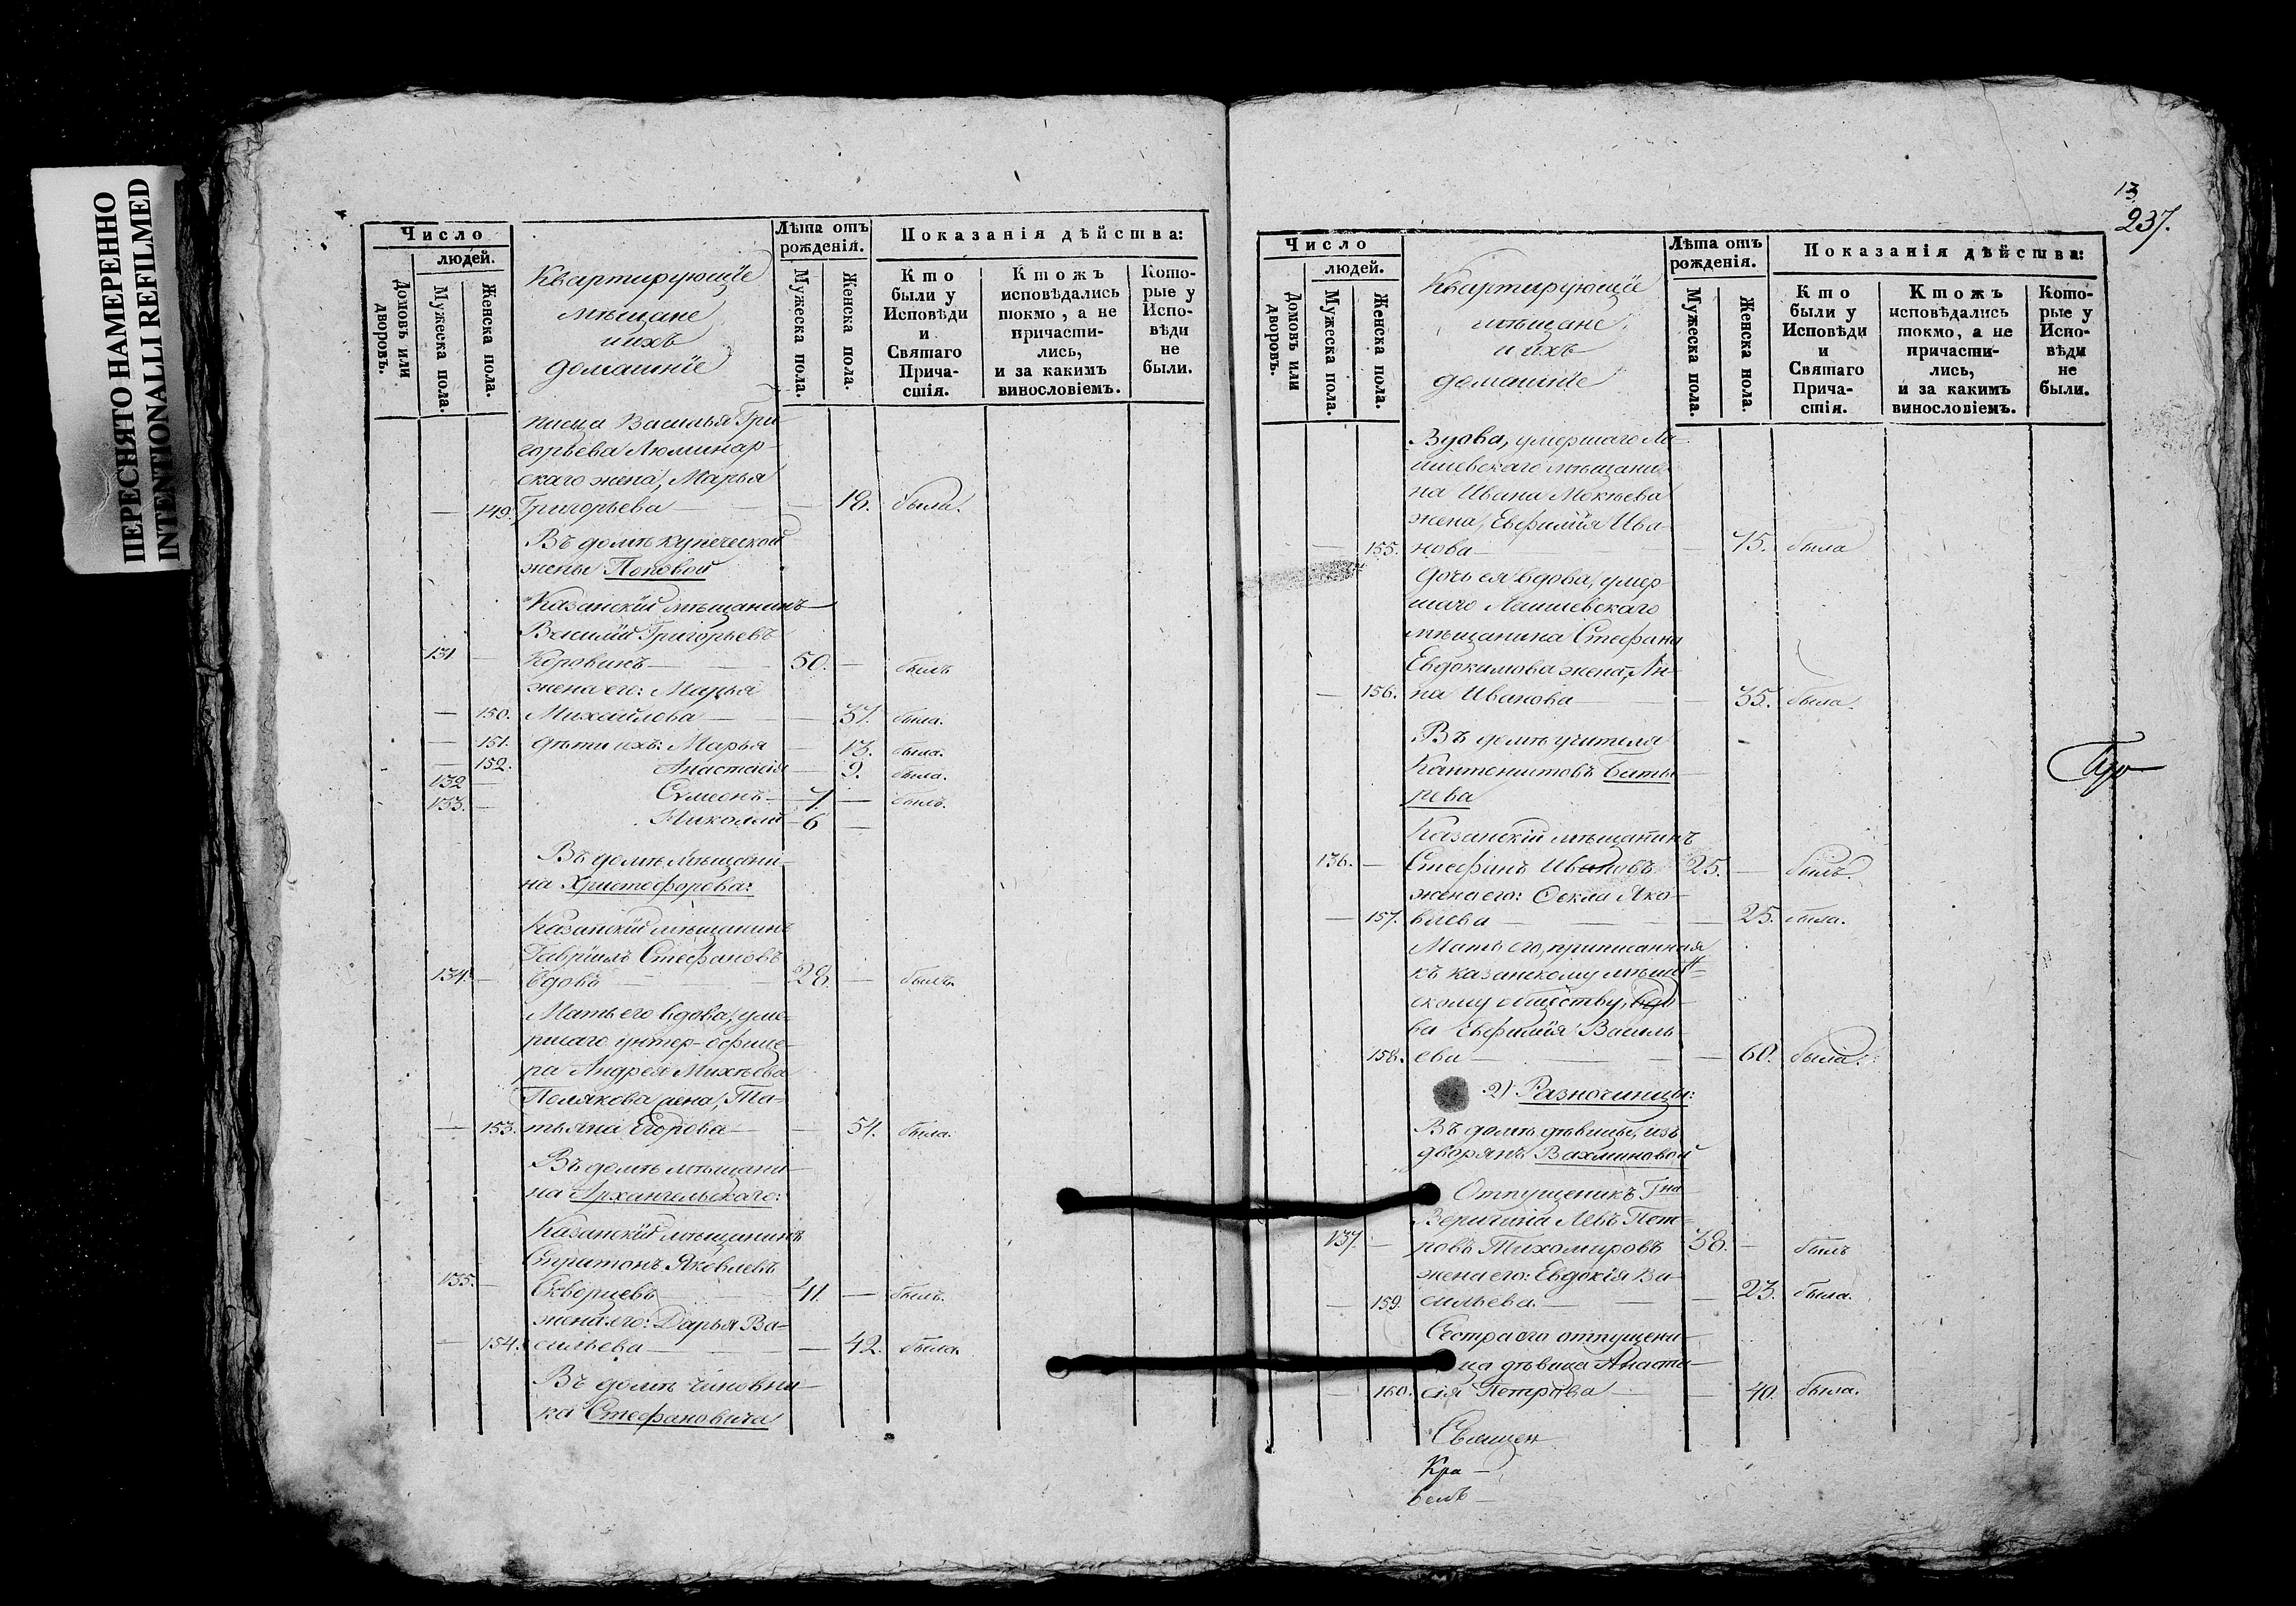 ПЕРЕСНЯТО НАМЕРЕННО
INTENTIONALLI REFILMED
Число
людей.
Домовъ или дворовъ.
Мужеска пола.
Женска пола.
Квартирующіе
мѣщане
и ихъ
домашніе
Лѣта отъ
рожденія.
Мужеска пола.
Женска пола.
Показанія дѣйства:
Кто
были у
Исповѣди
и
Святаго
Прича-
стія.
Ктожъ
исповѣдались
токмо, а не
причасти-
лись,
и за какимъ
винословіемъ.
Кото-
рые у
Испо-
вѣди
не
были.
писца Василья Гри-
горьева Люминар-
скаго жена, Марья
— 149. Григорьева — — 18. была.
Въ домѣ купеческой
жены Поповой
Казанскій мѣщанинъ
Василій Григорьевъ
131 — Коровинъ — 50. — былъ
жена его: Марья
— 150. Михайлова — — 37. была.
— 151. дѣти ихъ: Марья — 13. была.
— 152. Анастасія — 9. была.
132 — Сѵмеонъ — 7. — былъ.
133. — Николай — 6 —
Въ домѣ мѣщани-
на Христофорова:
Казанскій мѣщанинъ
Гавріилъ Стефановъ
134. — вдовъ — 28. — былъ.
Мать его вдова, уме-
ршаго унтер-офице-
ра Андрея Михѣева
Полякова жена, Та-
— 153. тьяна Егорова — — 54. была.
Въ домѣ мѣщани-
на Архангельскаго:
Казанскій мѣщанинъ
Спиритонъ Яковлевъ
135. — Скворцевъ — 41. — былъ.
жена его: Дарья Ва-
— 154. сильева — — 42. была.
Въ домѣ чиновни-
ка Стефановича
13
237.
Число
людей.
Домовъ или дворовъ.
Мужеска пола.
Женска пола.
Квартирующіе
мѣщане
и ихъ
домашніе
Лѣта отъ
рожденія.
Мужеска пола.
Женска пола.
Показанія дѣйства:
Кто
были у
Исповѣди
и
Святаго
Прича-
стія.
Ктожъ
исповѣдались
токмо, а не
причасти-
лись,
и за какимъ
винословіемъ.
Кото-
рые у
Испо-
вѣди
не
были.
Вдова, умершаго Ла-
ишевскаго мѣщани-
на Ивана Мокѣева
жена, Евфимія Ива-
— 155. нова — — 75. была
Дочь ея вдова, умер-
шаго Лаишевскаго
мѣщанина Стефана
Евдокимова жена, Ан-
— 156. на Иванова — — 35. была.
Въ домѣ учителя
Кантонистовъ Баты-
рева
Казанскій мѣщанинъ
136. — Стефанъ Ивановъ 25. — былъ.
жена его: Фекла Яко-
— 157. влева — — 25. была.
Мать его, приписанная
къ казанскому мѣщан-
скому обществу, вдо-
ва Евфимія Василь-
158. ева — — 60. была.
2) Разночинцы:
Въ домѣ дѣвицы, изъ
дворянъ Вахминовой
Отпущеникъ Гна
Веригина Левъ Пет-
137. — ровъ Тихомировъ 38. — былъ
жена его: Евдокія Ва-
— 159. сильева. — — 23. была.
Сестра его отпущени-
ца дѣвица Анаста-
— 160. сія Петрова — — 40. была.
Священ